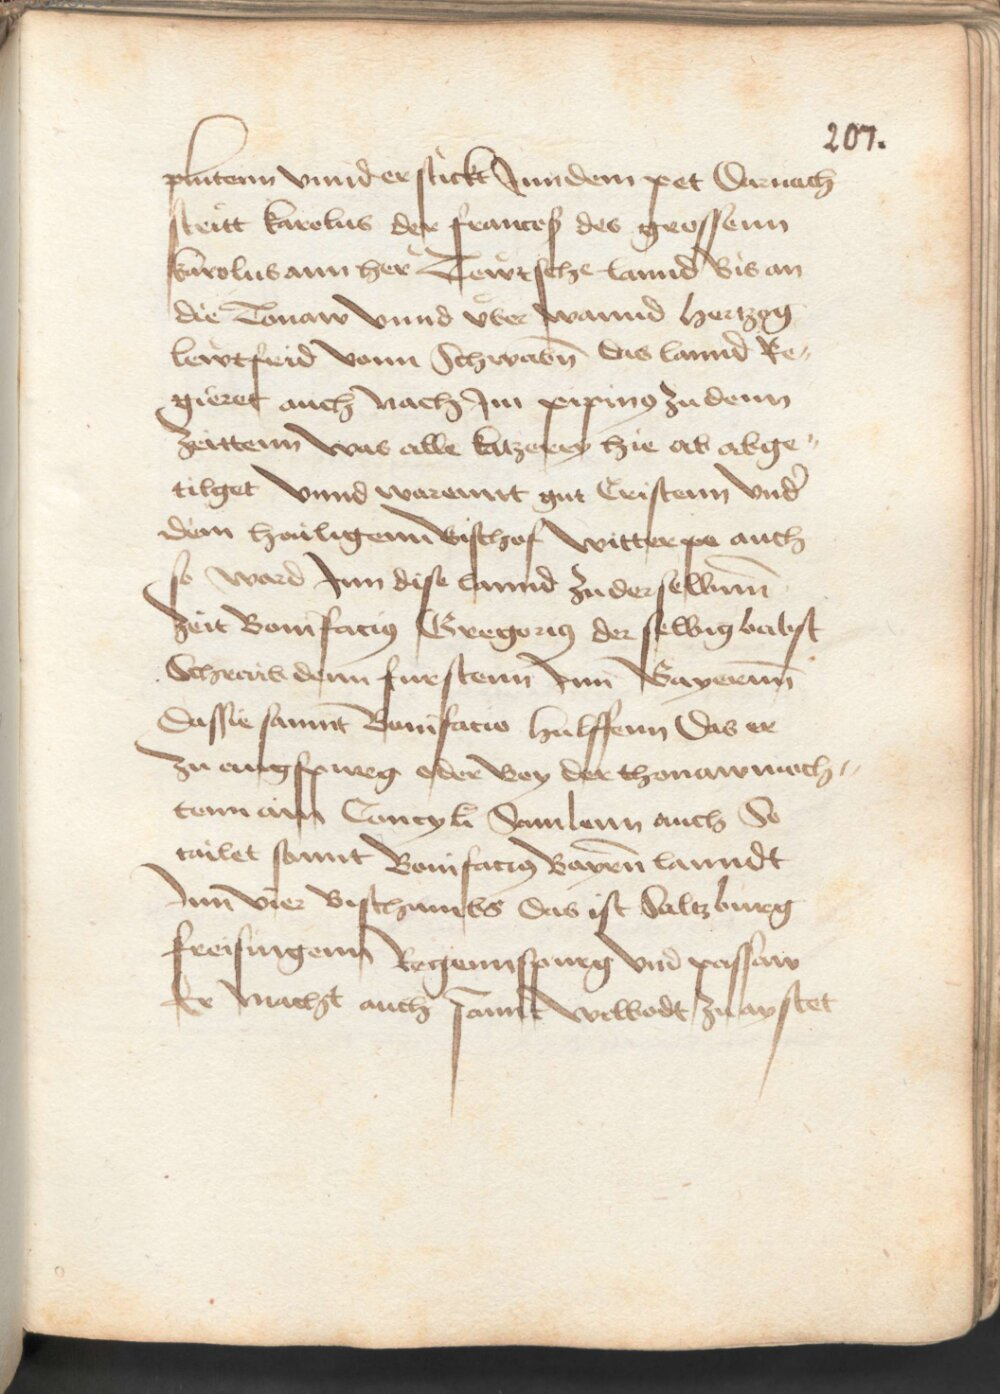 207.
plutenn vnnd erstickt Jnn dem pet Darnach
streitt karolus der frances des grossenn
karolus ann her Tewtsche lannd bis an
die Tonaw vnnd vber wannd hertzog
lewtfrid vonn Schwabn̄ das lannd Re„
gieret auch nach Jm pipinus zu denn
zeittenn was alle katzerey hie ab abge„
tilget vnnd warennt gut Cristenn vnder
dem hailigenn bischof witterpe auch
so ward Jnn dise lannd zu der selbnn̄
zeit Bonifacius Gregorius der selbig babst
Schraib denn furstenn Jnn Bayernn̄
Das sie sannt Bonifacio hulffenn Das er
zu augspurg oder bey der thonaw moch„
tenn ain Concyli Samlenn auch So
tailet sannt Bonifacius Bayrn̄ lanndt
Jnn vier Bisthumbs das ist Saltzburg
freisingenn Regennspurg vnd passaw
Er macht auch sannt wilbodt zu aystet